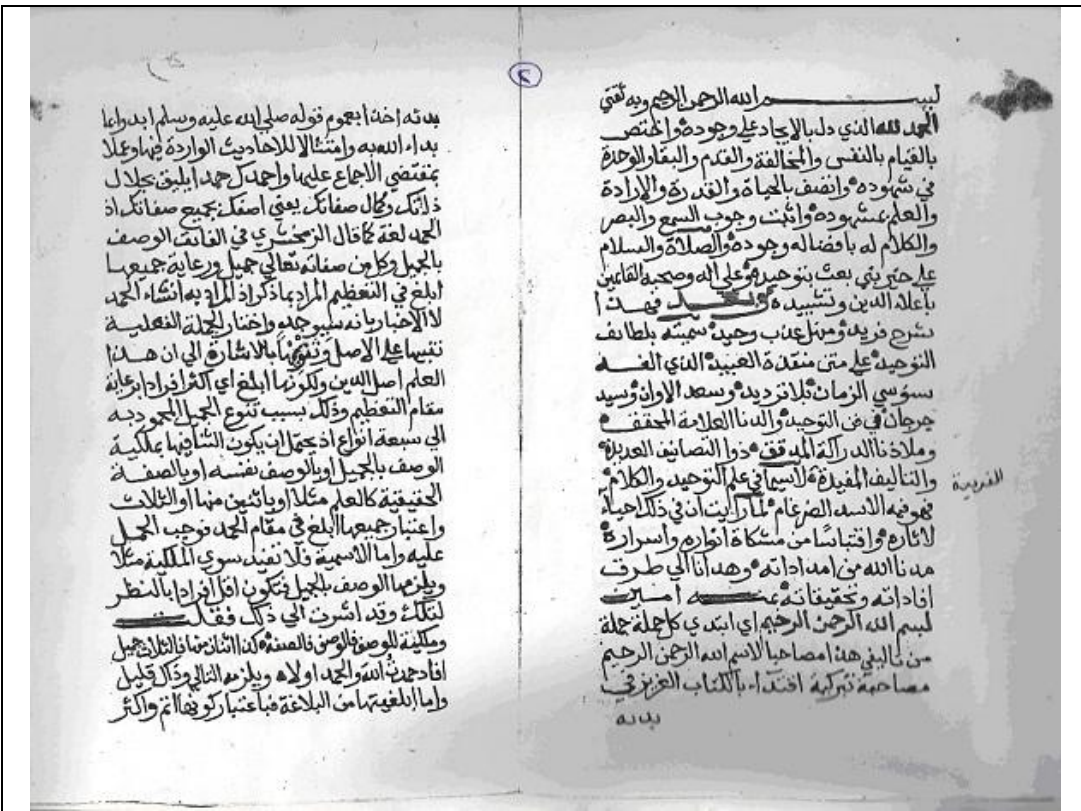 بسم الله الرحمن الرحيم وبه ثقتي
الحمد لله الذي دل بالايجاد على وجوده والمختص
بالقيام بالنفس والمخالفة والقدم والبقا والوحدة
في شهوده واتصف بالحياة والقدرة والارادة
والعلم بمشهوده واثبت وجوب السمع والبصر
والكلام له بافضاله وجوده والصلاة والسلام
على خير نبي بعث بتوحيده وعلى اله وصحبه القائمين
باعلاء الدين وتشييده وبعد فهذا
شرح فريد ومنهل عذب وحيد سميته بلطايف
التوحيد على متن منقذة العبيد الذي الفه
سنوسي الزمان بلا ترديد وسعد الاوان وسيد
جرجان في فن التوحيد والدنا العلامة المحقق
وملاذنا الدراكة المدقق ذوا التصانيف العديدة
والتاليف المفيدة لاسيما في علم التوحيد والكلام
الفريدة
فهو فيه الاسد الضرغام لما رايت ان في ذلك احياء
لاثاره واقتباسا من مشكاة انواره واسراره
مدنا الله من امداداته وهدانا الي طرف
افاداته وتحقيقاته بمنه امين
بسم الله الرحمن الرحيم اي ابتدي كل جملة جملة
من تاليفي هذا مصاحبا لاسم الله الرحمن الرحيم
مصاحبة تبركية اقتداء بالكتاب العزيز في
بدئه
٢
بدئه اخذا بعموم قوله صلي الله عليه وسلم ابدوا بما
بداء الله به وامتثالا للاحاديث الواردة فيها وعملا
بمقتضي الاجماع عليها واحمدك حمدا يليق بجلال
ذاتك وكمال صفاتك يعني اصفك بجميع صفاتك اذ
الحمد لغة كما قال الزمخشري في الفائق الوصف
بالجميل وكل من صفاته تعالي جميل ورعاية جميعها
ابلغ في التعظيم المراد بما ذكر اذ المراد به انشاء الحمد
لا الاخبار بانه سيوجده واختار الجملة الفعلية
تنبيها على الاصل بالاشارة الي ان هذا
العلم اصل الدين ولكونها ابلغ اي اكثر افرادا برعاية
مقام التعظيم وذلك بسبب تنوع الجميل المحمود به
الي سبعة انواع اذ يحتمل ان يكون الثنا فيها بملكية
الوصف بالجميل او بالوصف نفسه او بالصفة
الحقيقية كالعلم مثلا او باثنين منها او الثلاث
واعتبار جميعها ابلغ في مقام الحمد فوجب الحمل
عليه واما الاسمية فلا تفيد سوي الملكية مثلا
ويلزمها الوصف بالجميل فتكون اقل افرادا بالنظر
لتلك وقد اشرت الي ذلك فقلت
وملكية للوصف فالوصف فالصفة كذا اثنان منها فالثلاث جميل
افاد حمدت الله والحمد اولاه ويلزمه التالي وذاك قليل
واما ابلغيتها من البلاغة فباعتبار كونها اتم واكثر